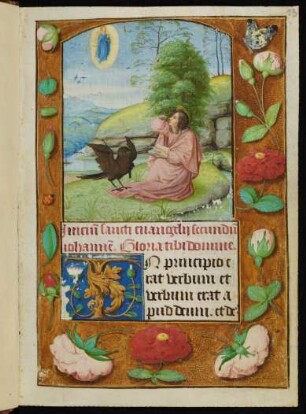 Inicium sancti euangelij secundũ
iohannē. Gloria tibi domine.
In principio e
rat verbum et
verbum erat a
pud deum. et de